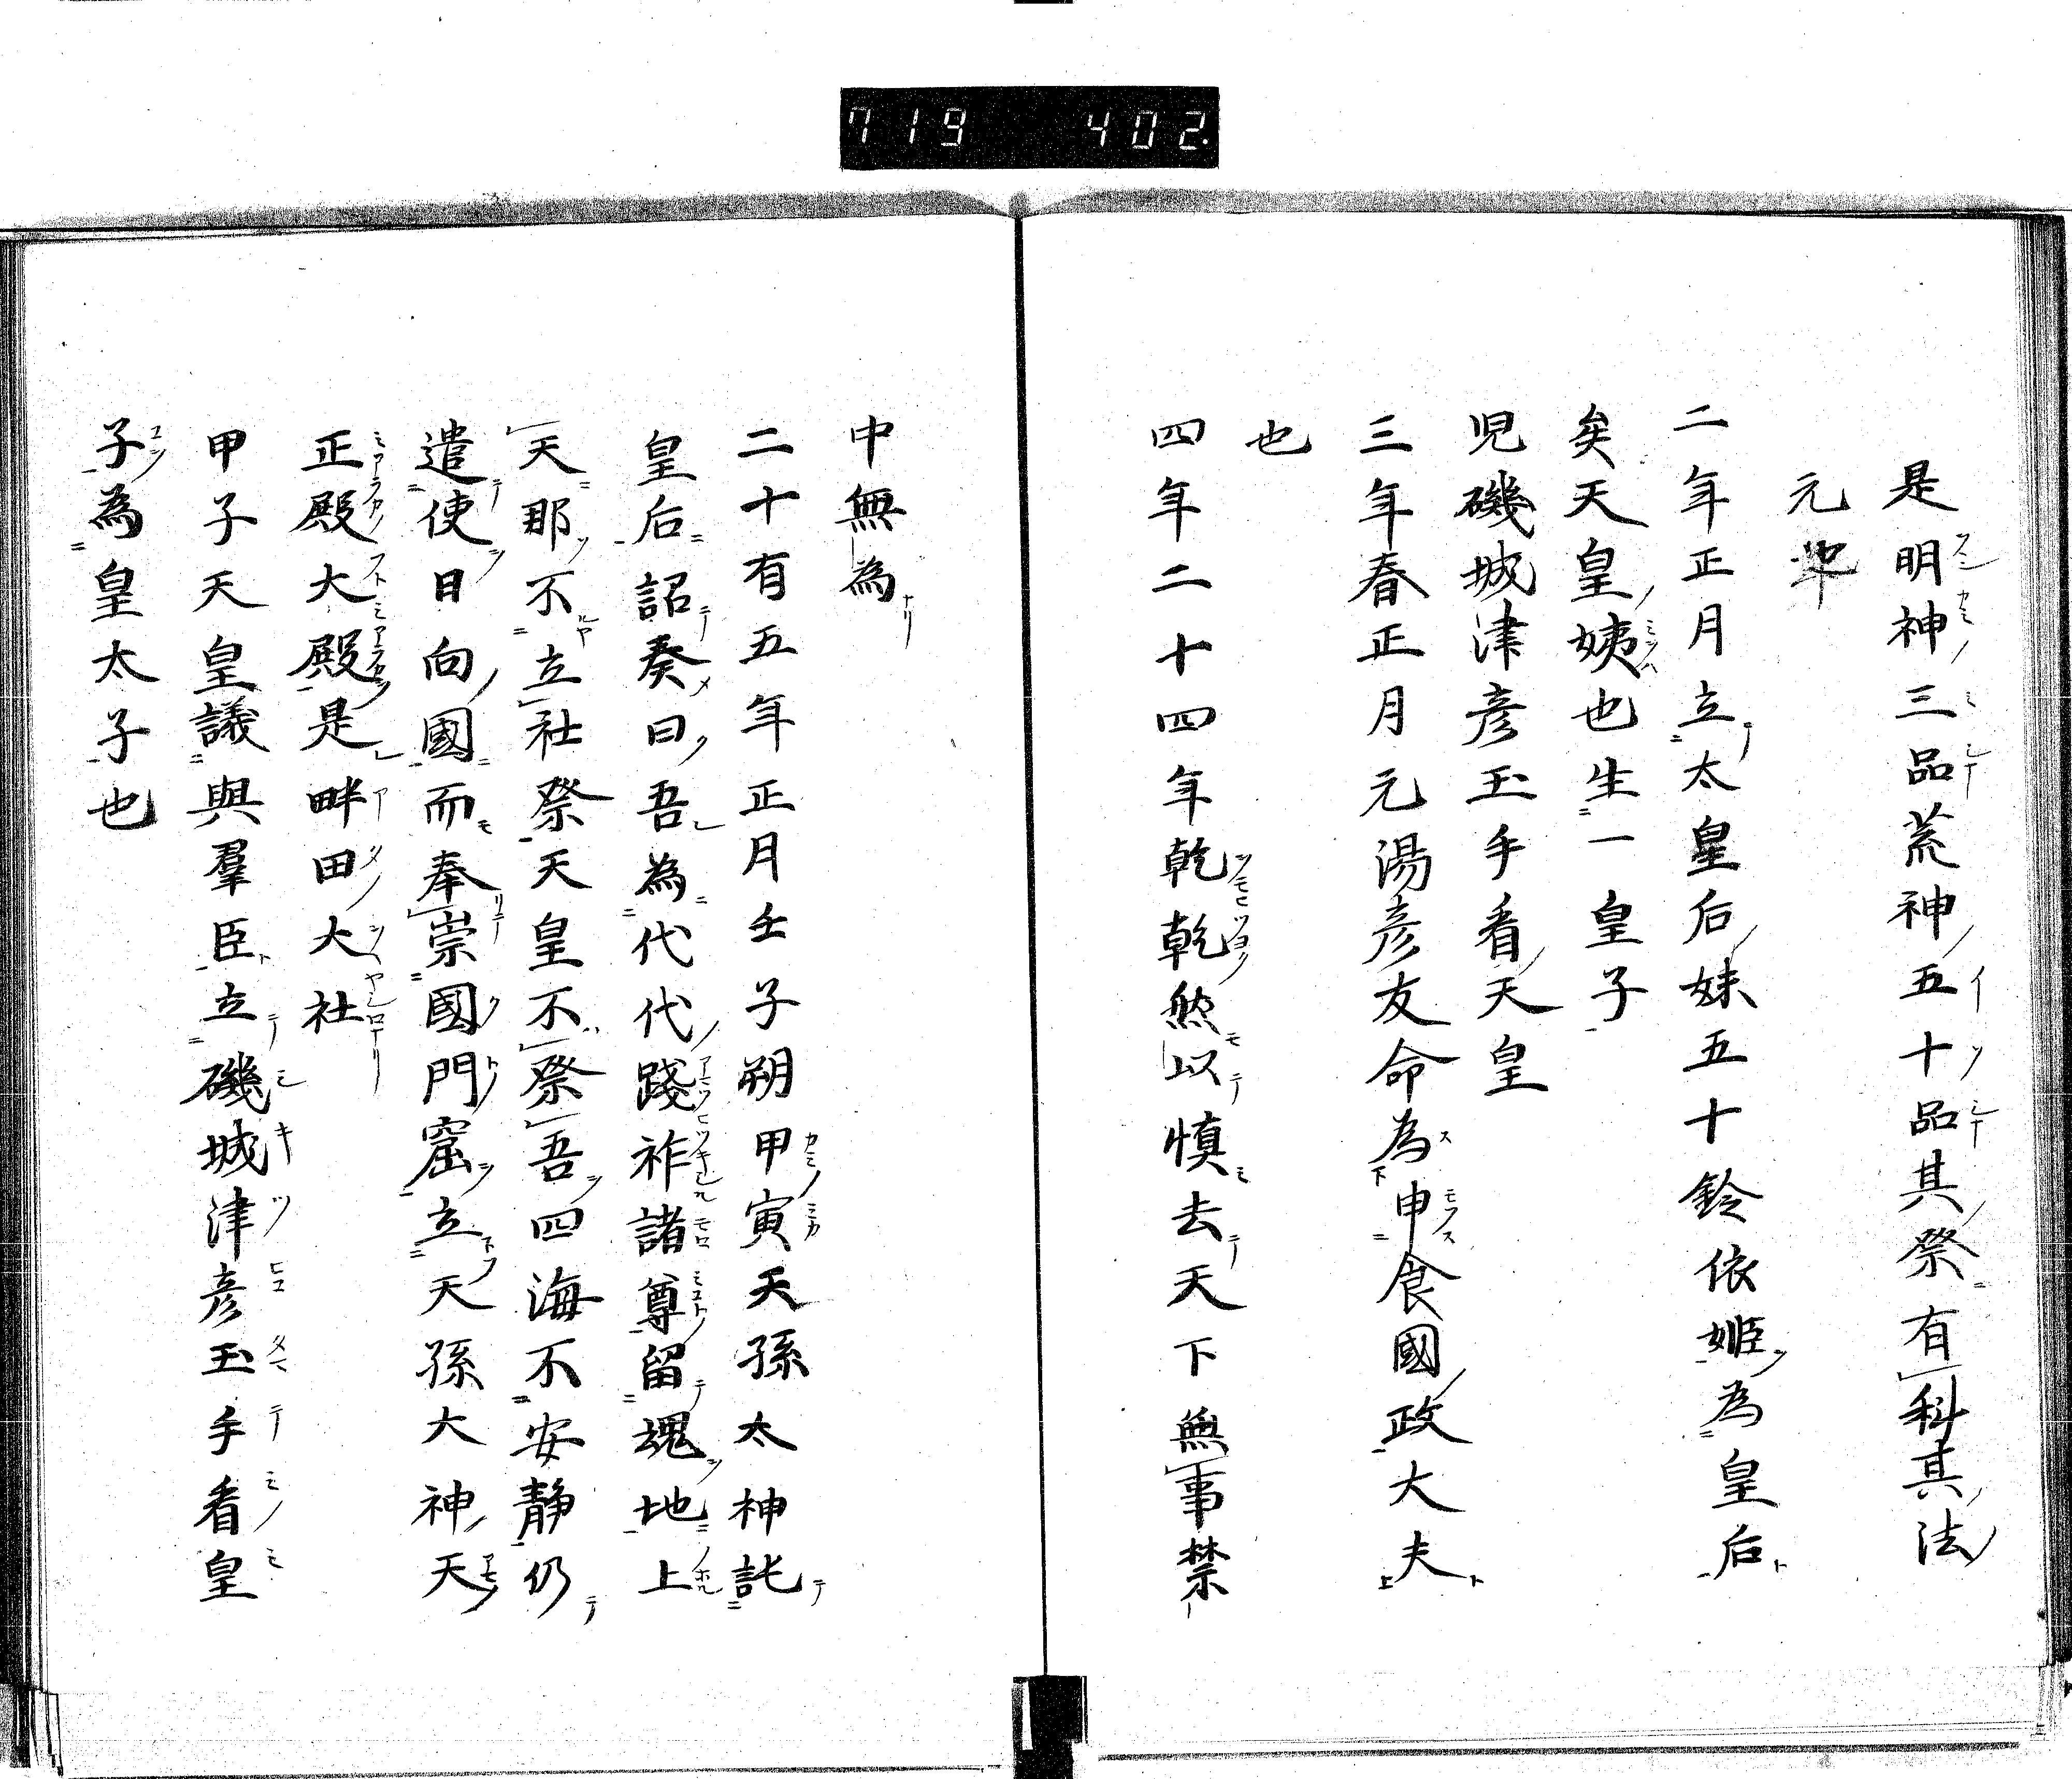 719 402.
是明神三品荒神五十品其祭有科其法
元
二年正月立太皇后妹五十鈴依姫為皇后
矣天皇姨也生一皇子
児磯城津彦玉手看天皇
三年春正月元湯彦友命為申食國政大夫
也
四年二十四年乾乾然以慎去天下無事禁
中無為
二十有五年正月壬子朔甲寅天孫太神託
皇后詔奏曰吾為代代踐祚諸尊留魂地上
天那不立社祭天皇不祭吾四海不安静仍
遣使日向國而奉崇國門窟立天孫大神天
正殿大殿是畔田大社
甲子天皇議與羣臣立磯城津彦玉手看皇
子為皇太子也